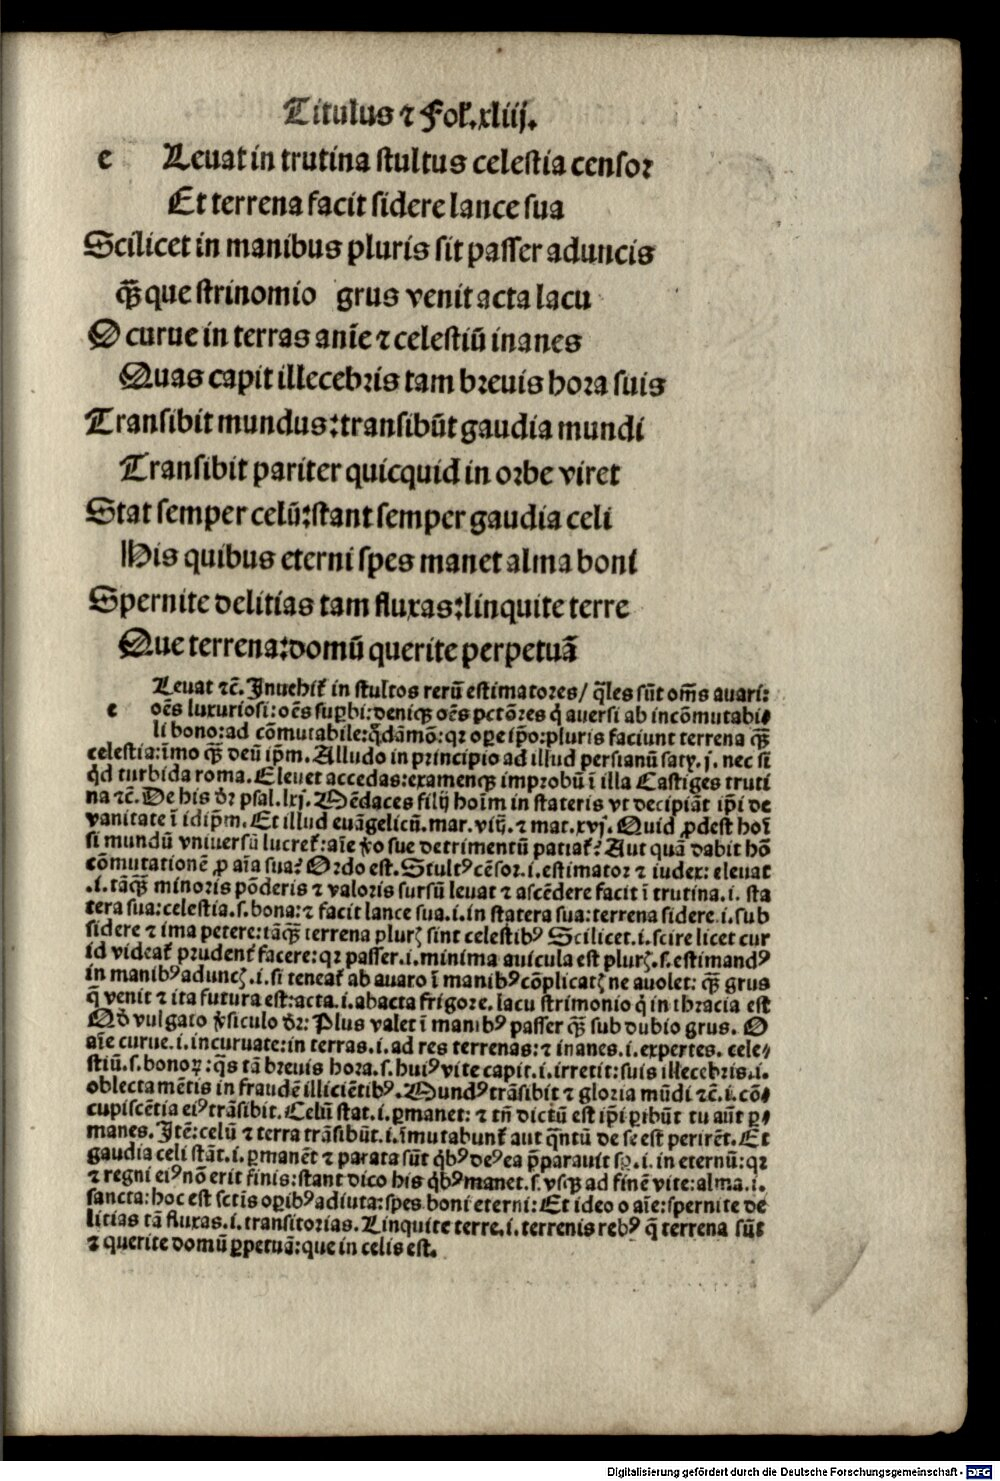 Titulus ⁊ Fol. xliij.
e Leuat in trutina stultus celestia censor
Et terrena facit sidere lance sua
Scilicet in manibus pluris sit passer aduncis
q̃ȝ que strinomio grus venit acta lacu
O curue in terras anīe ⁊ celestiū inanes
Quas capit illecebris tam breuis hora suis
Transibit mundus: transibūt gaudia mundi
Transibit pariter quicquid in orbe viret
Stat semper celū: stant semper gaudia celi
His quibus eterni spes manet alma boni
Spernite delitias tam fluxas: linquite terre
Que terrena: domū querite perpetuā
Leuat ⁊c̄. Inuehit᷑ in stultos rerū estimatores/ q̄les sūt om̄s auari:
e oēs luxuriosi: oēs supbi: deniqȝ oēs pctōres q̇ auersi ab incōmutabi⸗
li bono: ad cōmutabile: q̇dāmō: qꝛ oꝑe ip̄o: pluris faciunt terrena q̃ȝ
celestia: īmo q̃ȝ deū ip̄m. Alludo in principio ad illud persianū satẏ. j. nec si
q̇d turbida roma. Eleuet accedas: examenqȝ improbū ī illa Castiges truti
na ⁊c̄. De his dr̄ psal. lxj. Mēdaces filij hoīm in stateris vt decipiāt ip̄i de
vanitate ī idip̄m. Et illud euāgelicū. mar. viij. ⁊ mat. xvj. Quid ꝓdest hoī
si mundū vniuersū lucret᷑: aīe ꝟo sue detrimentū patiat᷑? Aut quā dabit hō
cōmutationē ꝓ aīa sua? Ordo est. Stultꝰ cēsor. i. estimator ⁊ iudex: eleuat
.i. tāq̃ȝ minoris pōderis ⁊ valoris sursū leuat ⁊ ascēdere facit ī trutina. i. sta
tera sua: celestia. s. bona: ⁊ facit lance sua. i. in statera sua: terrena sidere. i. sub
sidere ⁊ ima petere: tāq̃ȝ terrena plurꝭ sint celestibꝰ Scilicet. i. scire licet cur
id videat᷑ prudent᷑ facere: qꝛ passer. i. minima auicula est plurꝭ. s. estimandꝰ
in manibꝰ aduncꝭ. i. si teneat᷑ ab auaro ī manibꝰ cōplicatꝭ ne auolet: q̃ȝ grus
q̄ venit ⁊ ita futura est: acta. i. abacta frigore. lacu strimonio q̇ in thracia est
Qḋ vulgato ꝟsiculo dr̄: Plus valet ī manibꝰ passer q̃ȝ sub dubio grus. O
aīe curue. i. incuruate: in terras. i. ad res terrenas: ⁊ inanes. i. expertes. cele⸗
stiū. s. bonoꝝ: q̄s tā breuis hora. s. huiꝰ vite capit. i. irretit: suis illecebris. i.
oblecta mētis in fraudē illiciētibꝰ. Mundꝰ trāsibit ⁊ gloria mūdi ⁊c̄. i. cō⸗
cupiscētia eiꝰ trāsibit. Celū stat. i. ꝑmanet: ⁊ tn̄ dictū est ip̄i ꝑibūt tu aūt ꝑ⸗
manes. Itē: celū ⁊ terra trāsibūt. i. īmutabunt᷑ aut q̄ntū de se est perirēt. Et
gaudia celi stāt. i. ꝑmanēt ⁊ parata sūt q̇bꝰ deꝰ ea p̄parauit sꝑ. i. in eternū: qꝛ
⁊ regni eiꝰ nō erit finis: stant dico his q̇bꝰ manet. s. vsqȝ ad finē vite: alma. i.
sancta: hoc est sctīs oꝑibꝰ adiuta: spes boni eterni: Et ideo o aīe: spernite de
litias tā fluxas. i. transitorias. Linquite terre. i. terrenis rebꝰ q̄ terrena sūt
⁊ querite domū ꝑpetuā: que in celis est.
Digitalisierung gefördert durch die Deutsche Forschungsgemeinschaft - DFG